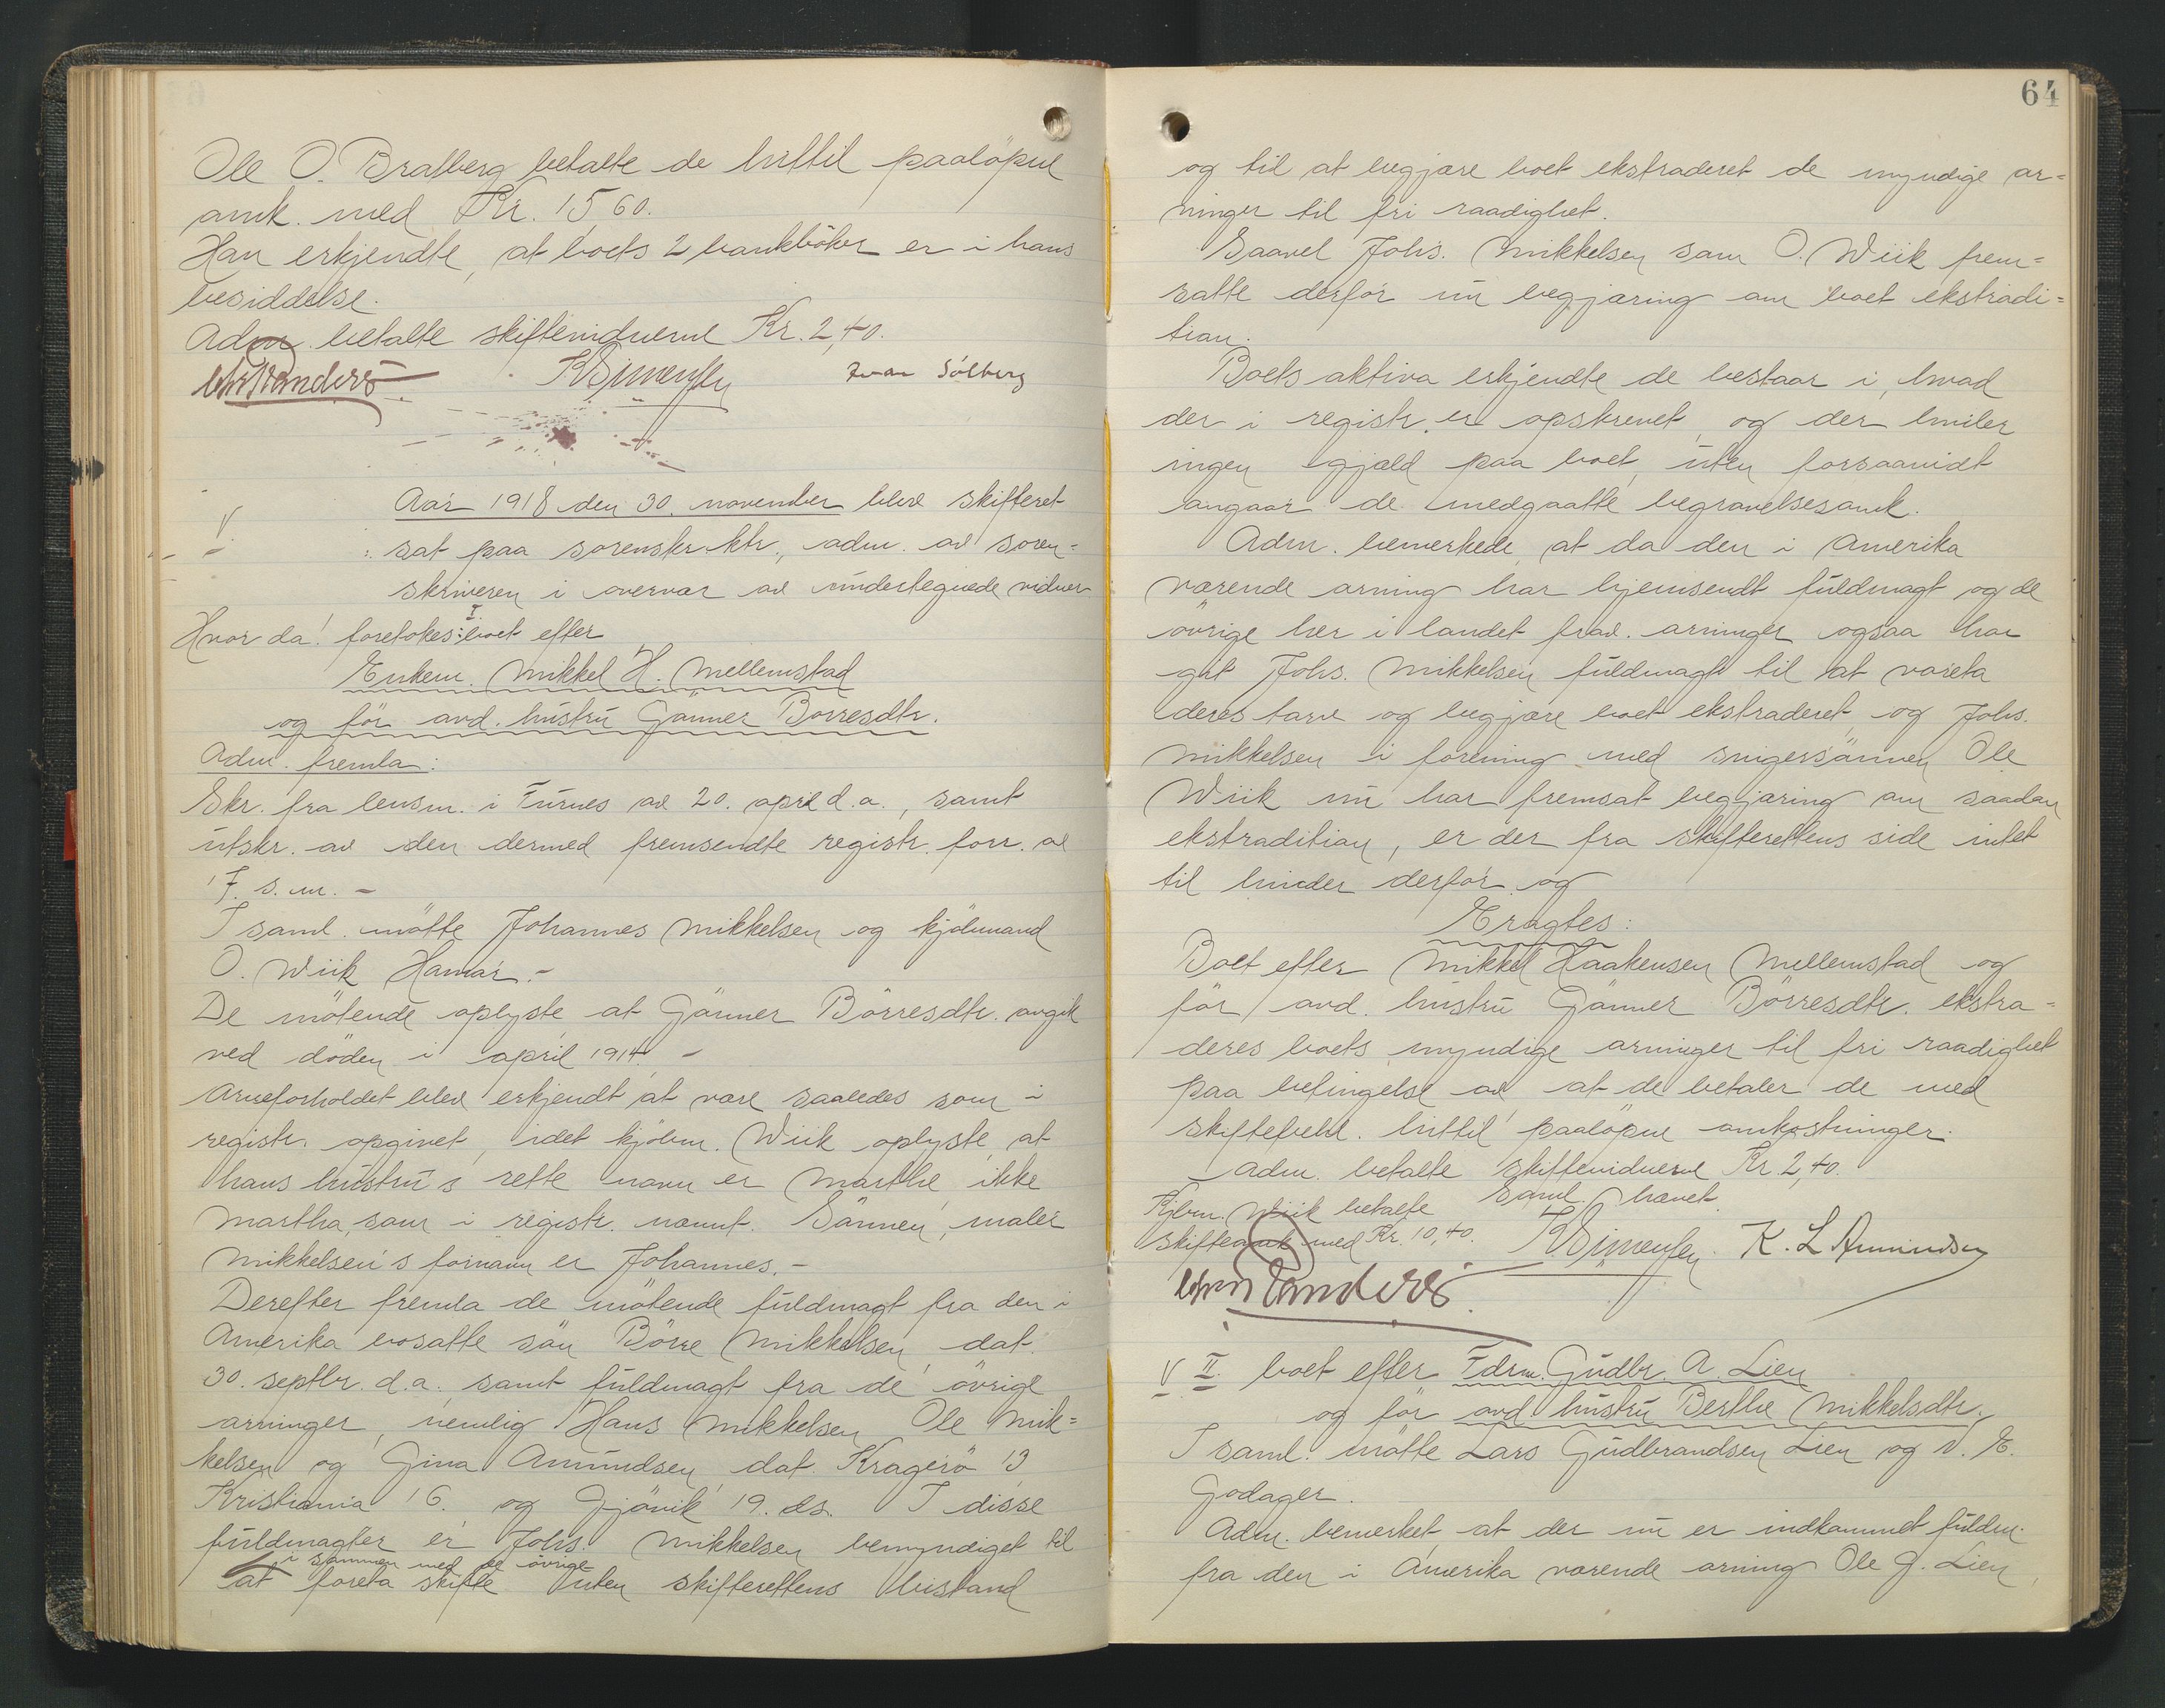 Ole O. Bratberg betalte de hittil paaløpne
omk. med Kr. 15,60.
Han erkjendte, at boets 2 bankbøker er i hans
besiddelse.
Adm. betalte skiftevidnerne Kr. 2,40.
K Simensen Ivar Solberg
V.
Aar 1918 den 30. november blev skifteret
sat paa sorenskr.ktr., adm. av soren=
skriveren i overvær av undertegnede vidner
Hvor da! foretokes: I boet efter
Enkem. Mikkel H. Mellemstad
og før avd. hustru Gønner Børresdtr.
Adm. fremla:
Skr. fra lensm. i Furnes av 20. april d.a., samt
utskr. av den dermed fremsendte registr. forr. av
17. s.m. –
I saml. møtte Johannes Mikkelsen og kjøbmand
O. Wiik Hamar. –
De møtende oplyste at Gønner Børresdtr. avgik
ved døden i april 1914. –
Arveforholdet blev erkjendt at være saaledes som i
registr. opgivet, idet kjøbm. Wiik oplyste, at
hans hustru's rette navn er Marthe, ikke
Martha, som i registr. nævnt. Sønnen, maler
Mikkelsen's fornavn er Johannes. –
Derefter fremla de møtende fuldmagt fra den i
Amerika bosatte søn Børre Mikkelsen, dat.
30. septbr. d.a. samt fuldmagt fra de øvrige
arvinger, nemlig Hans Mikkelsen Ole Mik=
kelsen og Gina Amundsen dat. Kragerø 13
Kristiania 16. og Gjøvik 19. ds. I disse
fuldmagter er Johs. Mikkelsen bemyndiget til
i sammen med de øvrige
at foreta skifte uten skifterettens bistand
64
og til at begjære boet ekstraderet de myndige ar=
vinger til fri raadighet.
Saavel Johs. Mikkelsen som O. Wiik frem=
satte derfor nu begjæring om boet ekstradi=
tion.
Boets aktiva erkjendte de bestaar i, hvad
der i registr. er opskrevet, og der hviler
ingen gjæld paa boet, uten forsaavidt
angaar de medgaatte begravelsesomk.
Adm. bemerkede, at da den i Amerika
værende arving har hjemsendt fuldmagt og de
øvrige her i landet frav. arvinger ogsaa har
git Johs. Mikkelsen fuldmagt til at vareta
deres tarv og begjære boet ekstraderet og Johs.
Mikkelsen i forening med svigersønnen Ole
Wiik nu har fremsat begjæring om saadan
ekstradition, er der fra skifterettens side intet
til hinder derfor og
Eragtes:
Boet efter Mikkel Haakensen Mellemstad og
før avd. hustru Gønner Børresdtr. ekstra=
deres boets myndige arvinger til fri raadighet
paa betingelse av at de betaler de med
skiftebeh. hittil paaløpne omkostninger.
Adm. betalte skiftevidnerne Kr 2,40.
Saml. hævet.
Kjbm. Wiik betalte
skifteomk med Kr. 10,40.
K Simensen. K. L Amundsen
V II. boet efter Fdrm. Gudbr. A. Lien
og før avd hustru Berthe Mikkelsdtr.
I saml. møtte Lars Gudbrandsen Lien og N. E.
Godager.
Adm. bemerket at der nu er indkommet fuldm.
fra den i Amerika værende arving Ole G. Lien,